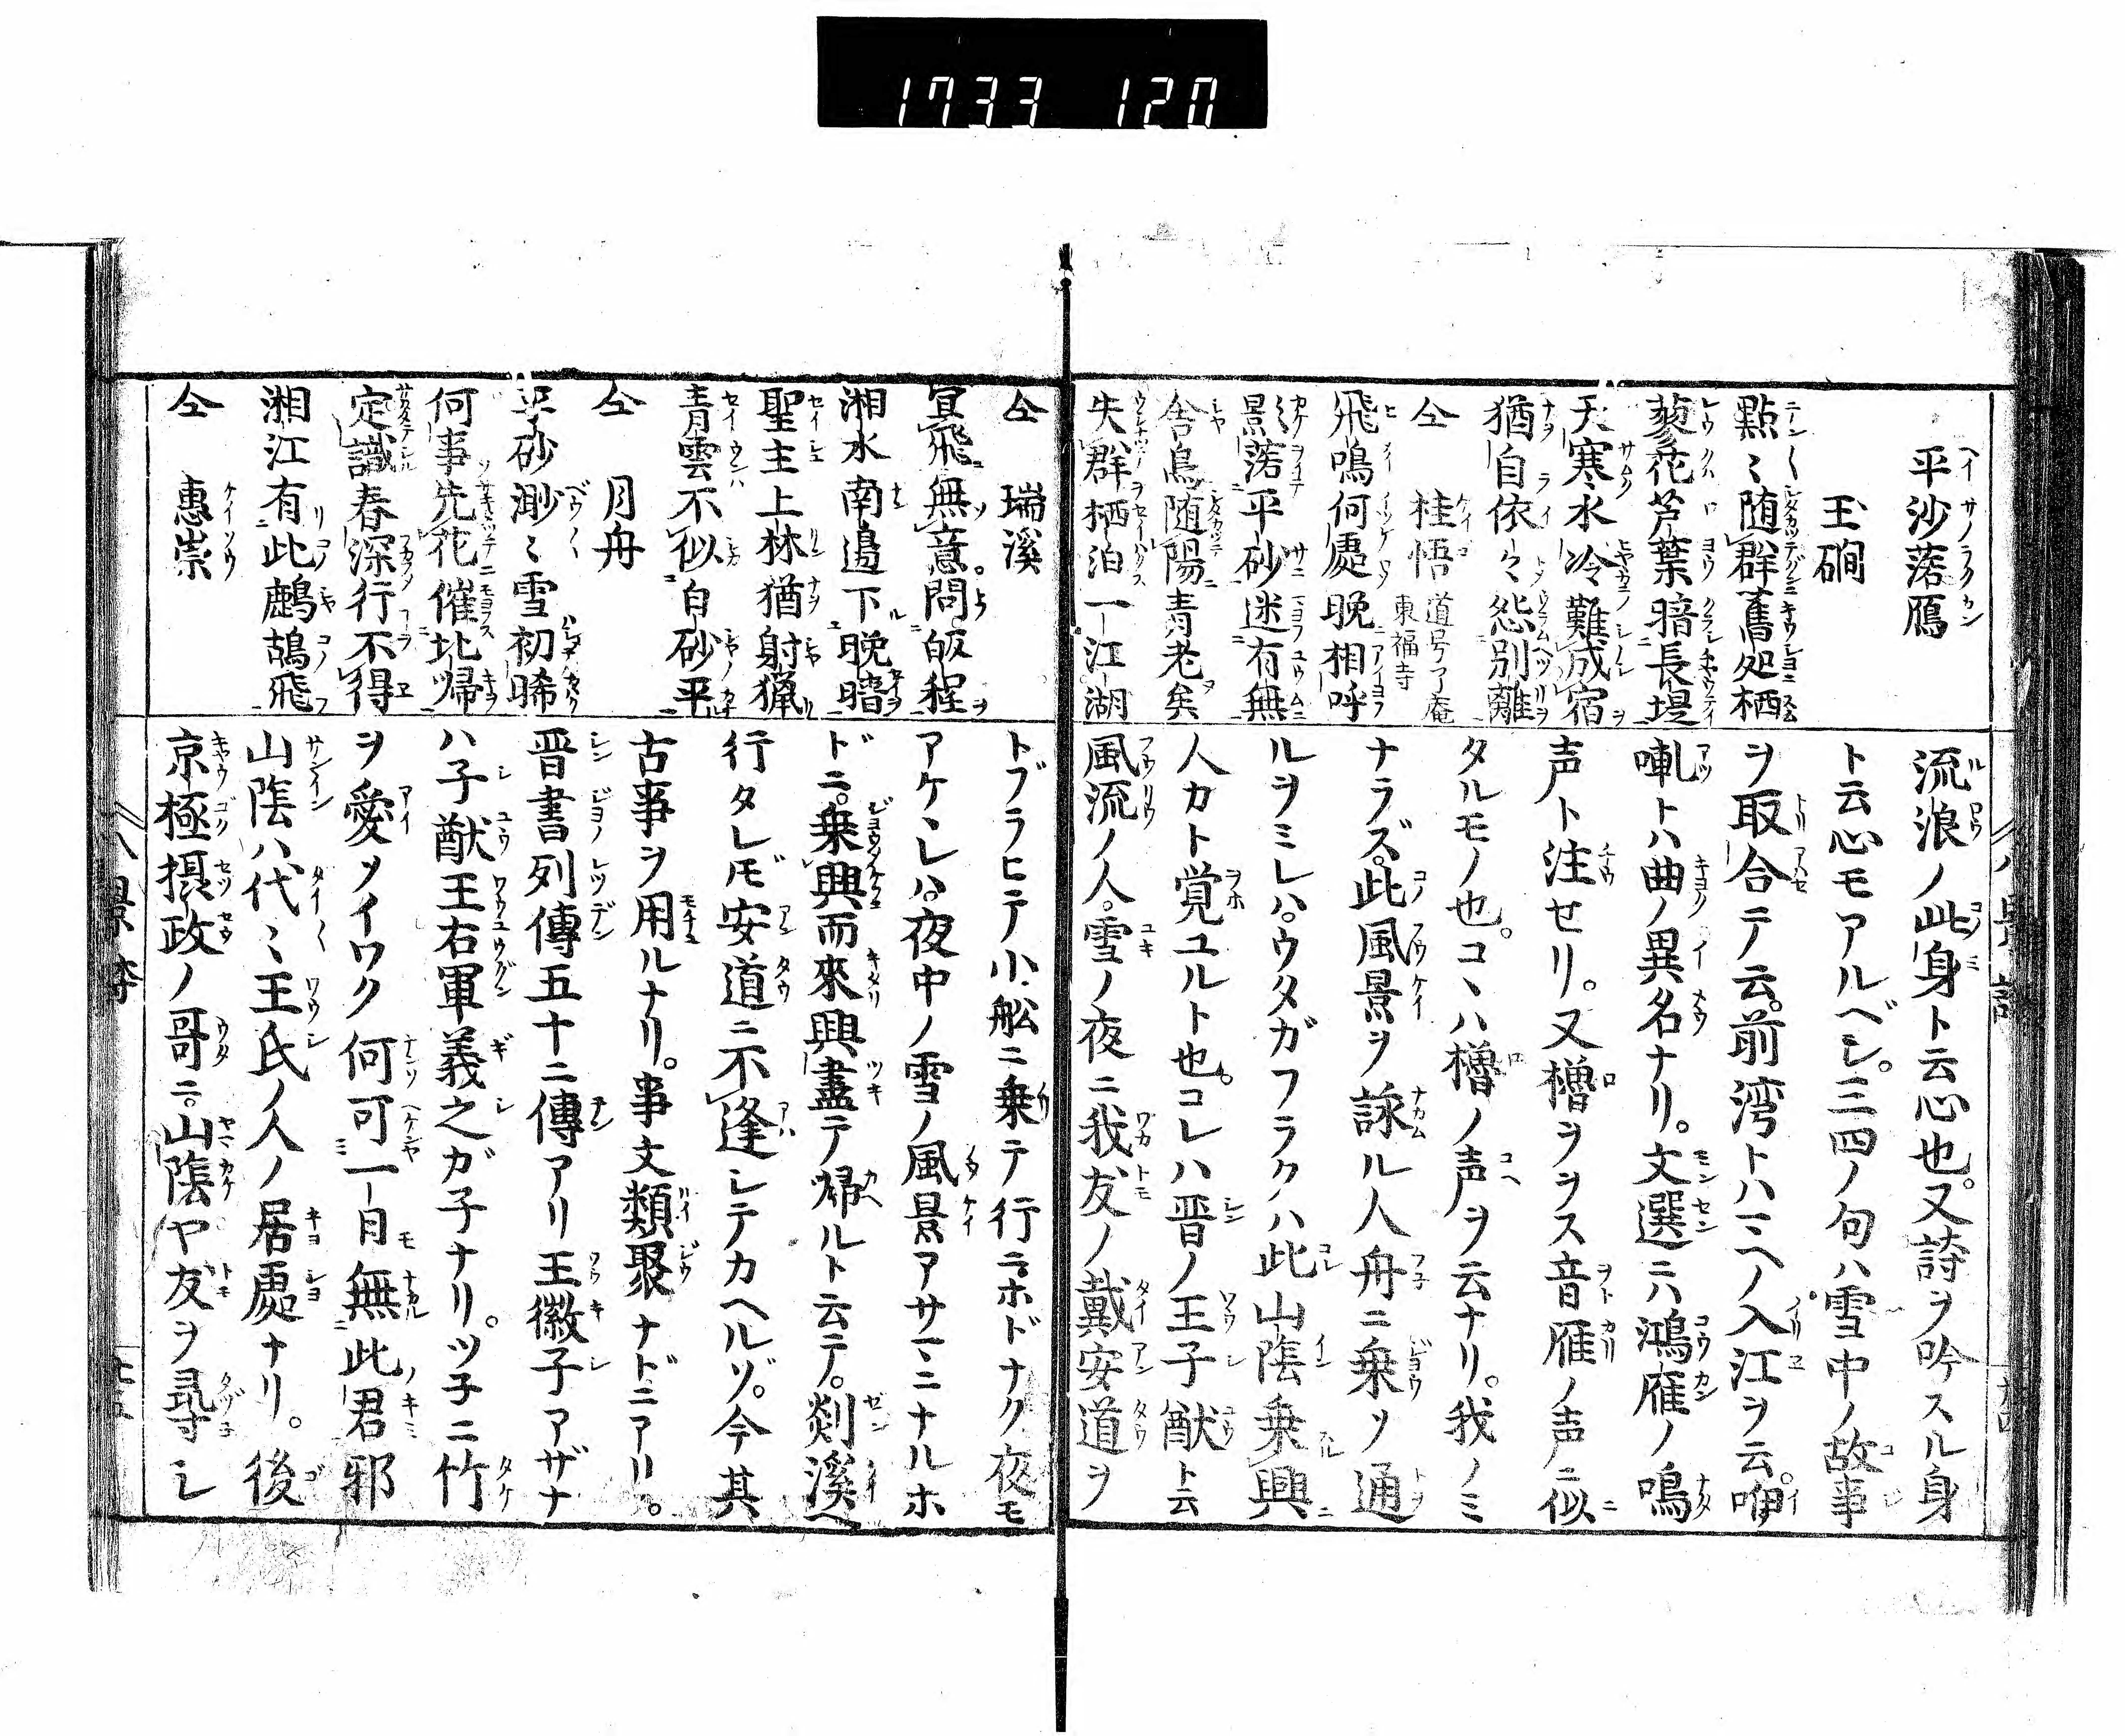 1733 120
平沙落鴈
玉磵
點〻随群舊処栖
蓼花芦葉暗長堤
天寒水冷難成宿
猶自依〻怨別離
仝 桂悟 道号了庵 東福寺
飛鳴何處晩相呼
影落平砂迷有無
舎鳥随陽青老矣
失群栖泊一江湖
流浪ノ此身ト云心也。又詩ヲ吟スル身
ト云心モアルベシ。三四ノ句ハ雪中ノ故事
ヲ取合テ云。前湾トハミヘノ入江ヲ云。咿
喇トハ曲ノ異名ナリ。文選ニハ鴻雁ノ鳴
声ト注セリ。又櫓ヲヲス音雁ノ声ニ似
タルモノ也。コヽハ櫓ノ声ヲ云ナリ。我ノミ
ナラズ。此風景ヲ詠ル人舟ニ乗ツ通
ルヲミレハ。ウタガフラクハ此山陰乗興
人カト覚ユルト也。コレハ晋ノ王子猷ト云
風流ノ人。雪ノ夜ニ我友ノ戴安道ヲ
仝 瑞溪
冥飛無意問皈程
湘水南邉下晩晴
聖主上林猶射猟
青雲不似白砂平
仝 月舟
平砂渺〻雪初晞
何事先花催北帰
定識春深行不得
湘江有此鷓鴣飛
仝 惠崇
トブラヒテ小舩ニ乗テ行ニホドナク夜モ
アケヽレハ。夜中ノ雪ノ風景アサマニナルホ
ドニ。乗興而來興盡テ帰ルト云テ。剡溪ヘ
行タレドモ安道ニ不逢シテカヘルゾ。今其
古事ヲ用ルナリ。事文類聚ナドニアリ。
晋書列傳五十ニ傳アリ王徽子アザナ
ハ子猷王右軍義之ガ子ナリ。ツ子ニ竹
ヲ愛ツイワク何可一日無此君邪
山陰ハ代〻王氏ノ人ノ居處ナリ。後
京極摂政ノ哥ニ。山陰ヤ友ヲ尋シ
八景詩